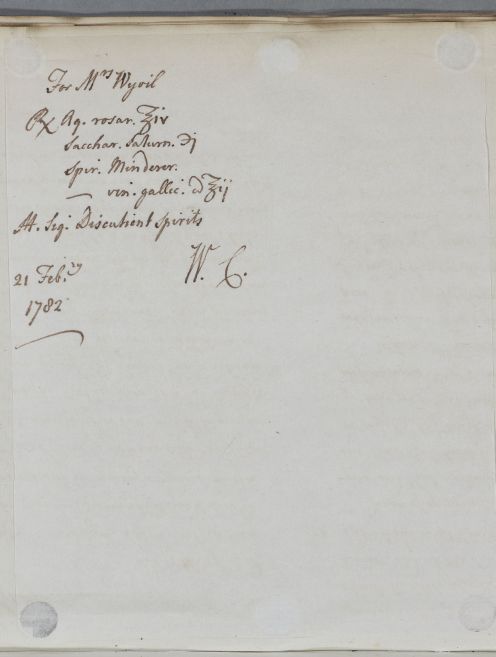 For Mrs Wyvil
℞ Aq. rosar. ℥iv
Sacchar. Saturn. ℈j
Spir. Minderer.
— vin. gallic. aa ℥ij
M. Sig. Discutient spirits
W. C.
21 Feb.ry
1782